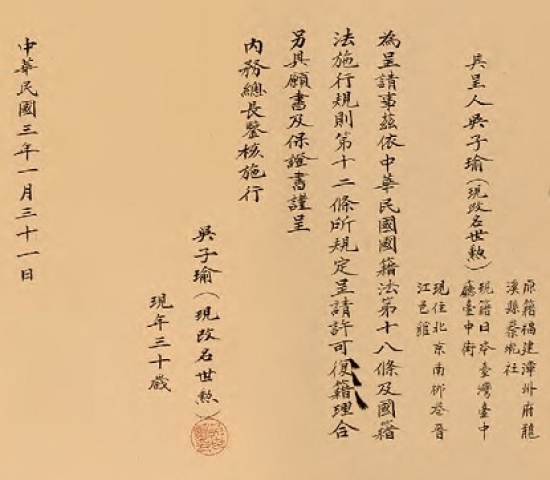 具呈人吳子瑜(現改名世勲)
原籍福建漳州府龍
溪縣蔡坑社
現籍日本臺灣臺中
廳臺中街
現住北京南柳巷晉
江邑館
為呈請事茲依中華民國國籍法第十八條及國籍
法施行規則第十二條所規定呈請許可復籍理合
另具願書及保證書謹呈
內務總長鑒核施行
吳子瑜(現改名世勲)
現年三十歲
中華民國三年一月三十一日